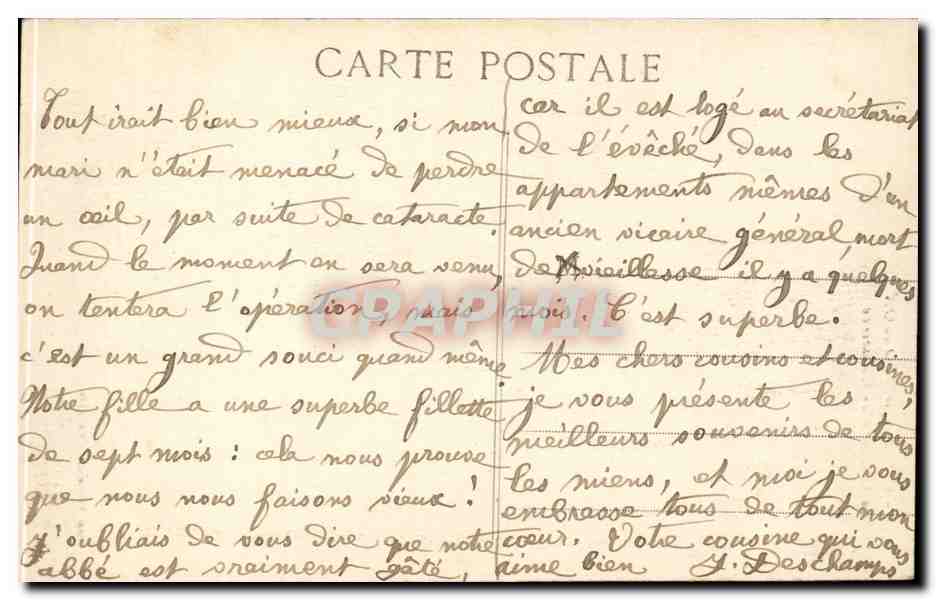 CARTE POSTALE
Tout irait bien mieux, si mon
mari n'était menacé de perdre
un œil, par suite de cataracte.
Quand le moment en sera venu,
on tentera l'opération, mais
c'est un grand souci quand même.
Notre fille a une superbe fillette
de sept mois : cela nous prouve
que nous nous faisons vieux !
J'oubliais de vous dire que notre
abbé est vraiment gâté,
car il est logé au secrétariat
de l'évêché, dans les
appartements mêmes d'un
ancien vicaire général, mort
de vieillesse il y a quelques
mois. C'est superbe.
Mes chers cousins et cousines,
je vous présente les
meilleurs souvenirs de tous
les miens, et moi je vous
embrasse tous de tout mon
cœur. Votre cousine qui vous
aime bien J. Deschamps
CPAPHIL